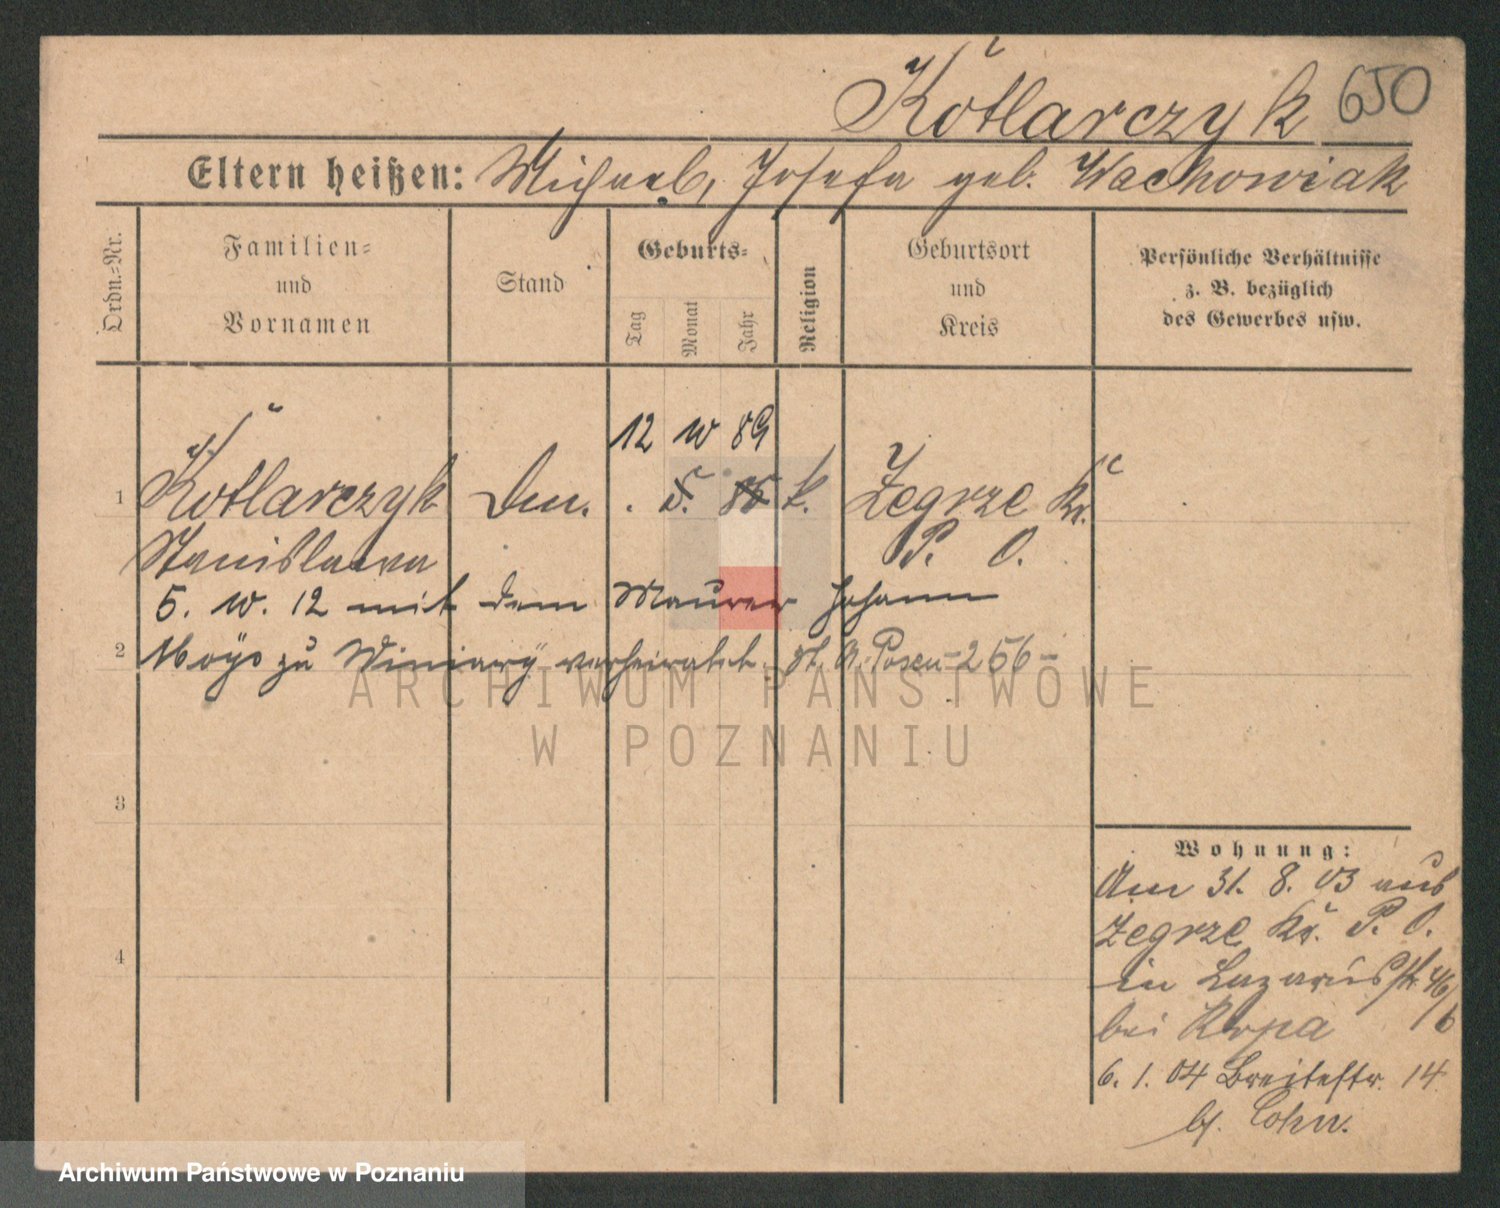 Kotlarczyk 650
Eltern heißen: Michael, Josefa geb. Wachowiak
Ordn.-Nr.
Familien-
und
Vornamen
Stand
Geburts-
Tag
Monat
Jahr
Religion
Geburtsort
und
Kreis
Persönliche Verhältnisse
z. B. bezüglich
des Gewerbes usw.
12 10 89
1 Kotlarczyk . 5. 86. k. Zegrze Kr.
Stanislawa P. O.
5. 10. 12 mit dem Maurer Johann
2 zu Winiary verheiratet. St. A. Posen - 256 -
3
4
Wohnung:
Am 31. 8. 03 aus
Zegrze Kr. P. O.
in Lazarusstr. 46/
bei Krpa 6
6. 1. 04 Breitestr. 14
b/. Cohn.
ARCHIWUM PAŃSTWOWE
W POZNANIU
Archiwum Państwowe w Poznaniu